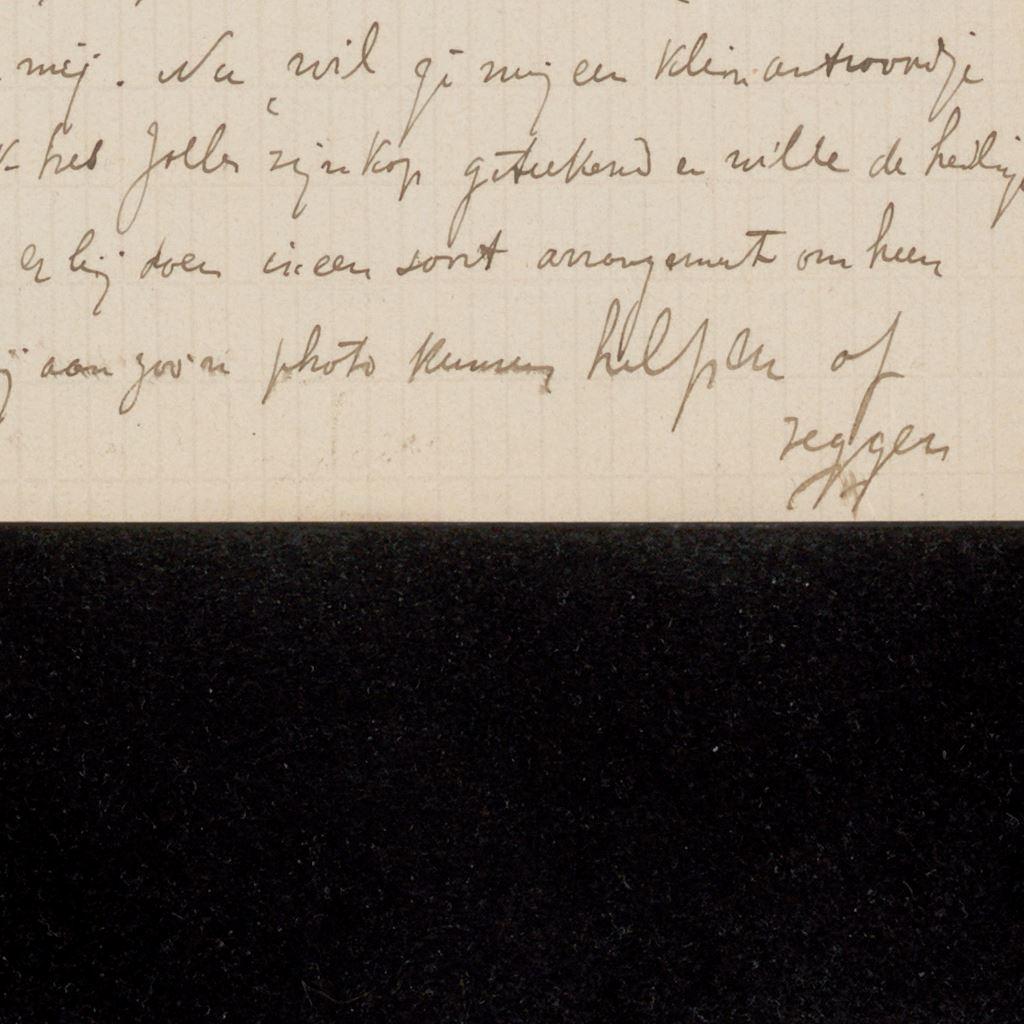 mij. Nu wil gi mij een klein antwoordje
k heb Jolles zijn kop geteekend en wilde de heilige
er bij doen in een soort arrangement om heen
j aan zoo'n photo kunnen helpen of
zeggen